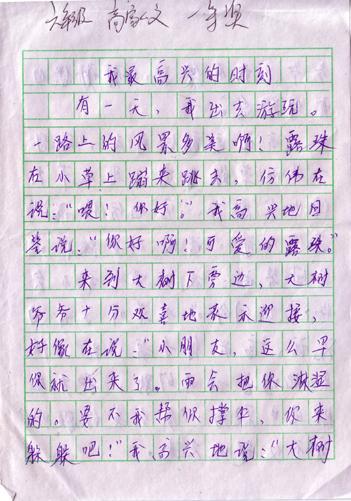 六年级 高家文 一等奖
我最高兴的时刻
有一天，我出去游玩。
一路上的风景多美啊！露珠
在小草上蹦来跳去，仿佛在
说：“喂！你好。”我高兴地回
答说：“你好啊！可爱的露珠。”
来到大树下旁边，大树
爷爷十分欢喜地表示迎接，
好像在说：“小朋友，这么早
你就出来了。雨会把你淋湿
的。要不我帮你撑伞，你来
躲躲吧！”我高兴地说：“大树